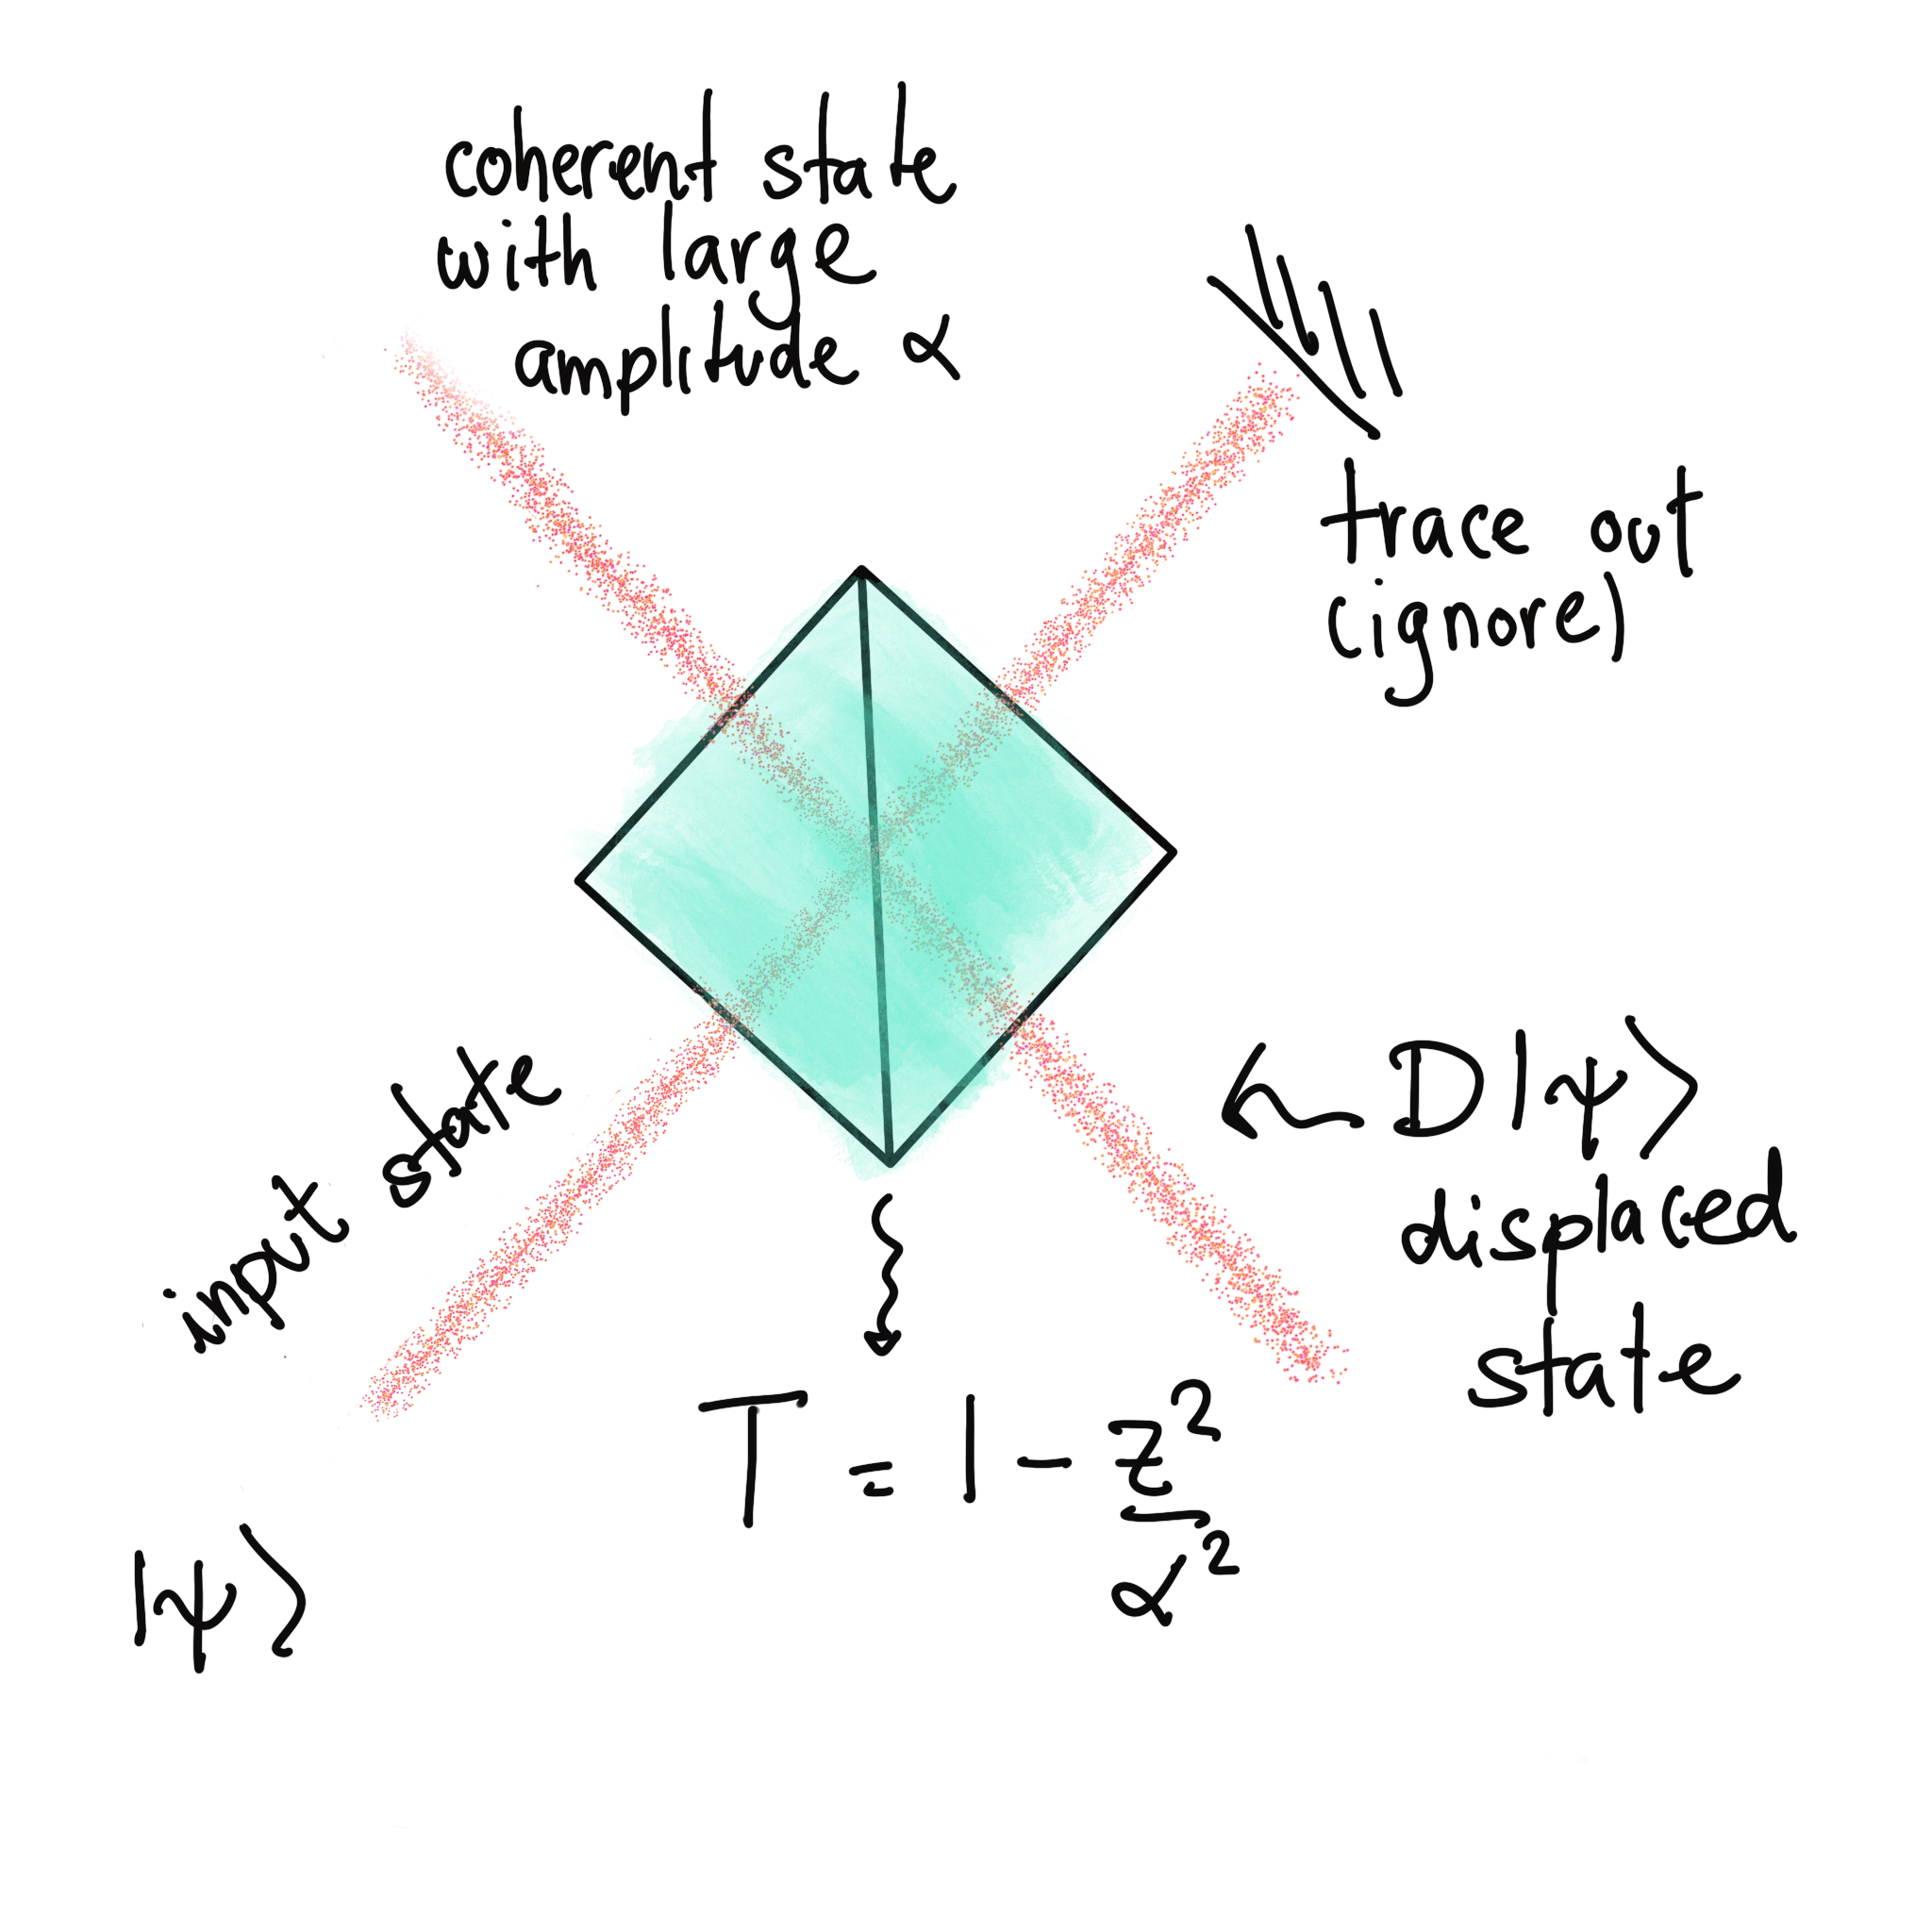 coherent state
with large
amplitude α
trace out
(ignore)
input state
|ψ⟩
D|ψ⟩
displaced
state
T = 1 - z²/α²